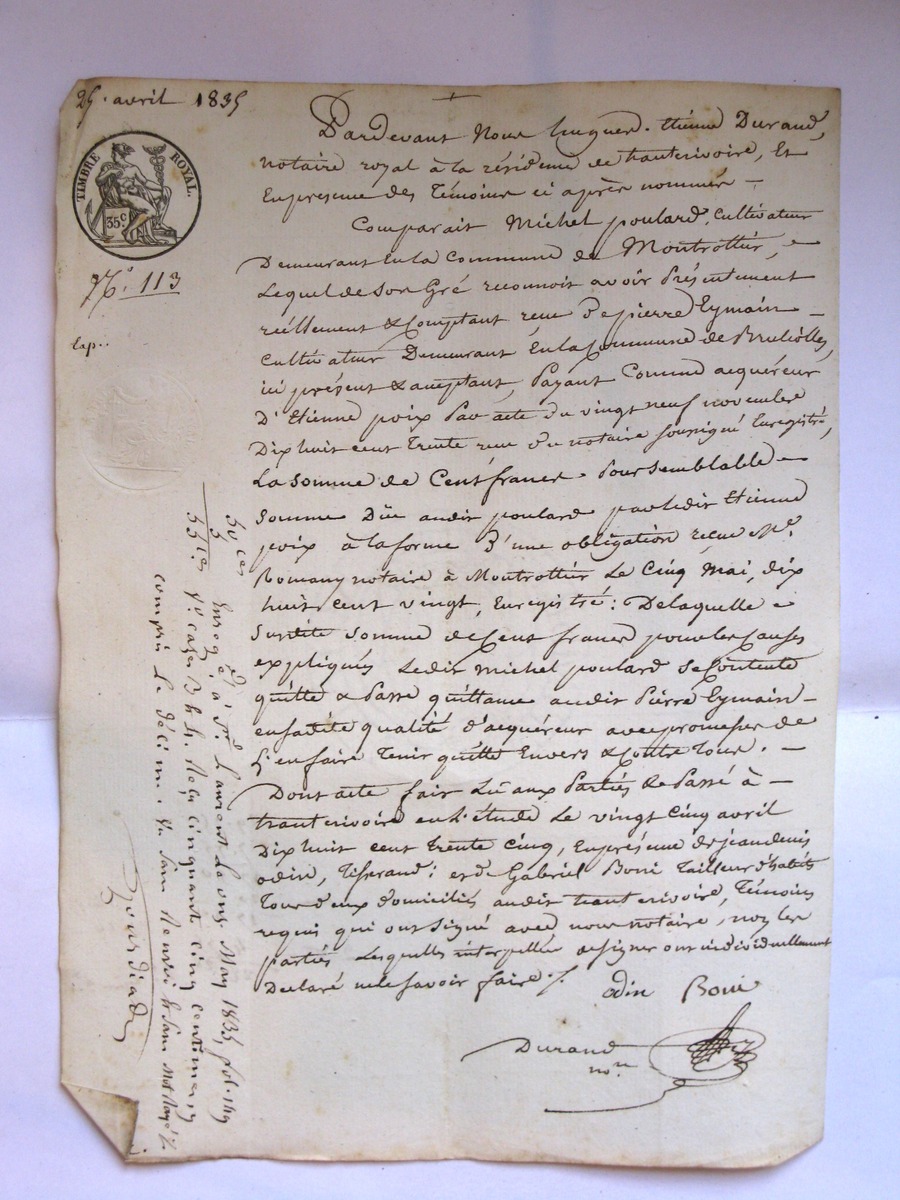 25. avril 1835
TIMBRE ROYAL.
35 c.
N.° 113
Exp..
Pardevant Nous hugues. Etienne Durand,
notaire royal à la résidence de hauterivoire, Et
En presence des Témoins ci après nommés —
Comparait Michel poulard, Cultivateur
Demeurant En la Commune de Montrottier,
Lequel de Son Gré reconnoit avoir Présentement
réellement & Comptant reçu De pierre Eymain —
Cultivateur Demeurant En la Commune de Brulliolles,
ici présent & acceptant, Payant Comme acquéreur
D'Etienne poix Par acte du vingt neuf novembre
Dix huit cent Trente reçu Du notaire soussigné Enregistré,
La Somme de Cent francs Pour Semblable
Somme Düe audit poulard par ledit Etienne
poix à la forme D'une obligation reçue Me.
Romany notaire à Montrottier Le Cinq Mai, dix
huit cent vingt, Enregistré: De laquelle
Susdite Somme de Cent francs pour les Causes
expliqués Ledit Michel poulard Se Contente
quitte & Passe quittance audit Pierre Eymain —
en sadite qualité d'acquéreur avec promesse de
L'en faire Tenir quitte Envers & Contre Tous. —
Dont acte fait Lû aux Parties & Passé à —
hauterivoire en L'étude Le vingt Cinq avril
Dix huit cent trente Cinq, En présence de jean denis
odin, Tisserand; et de Gabriel Boni Tailleur d'habits
Tous deux domiciliés audit hauterivoire, Témoins
requis qui ont Signé avec nous notaire, non les
parties Lesquelles interpellés de signer ont individuellement
Déclaré ne le Savoir faire ./.
odin Boni
Durand
nore
50 ces
5
55 ces
Enregé à St Laurent Le onze May 1835, fol. 169
Vo cases 3 & 4. Reçu cinquante cinq centimes
compris Le décime.